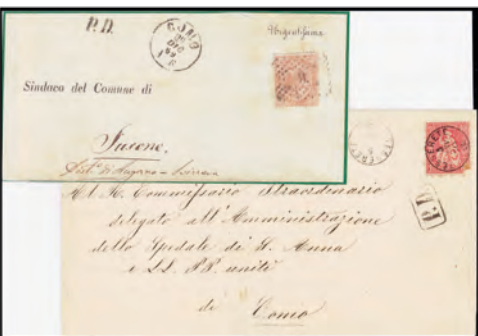 P.D.
COMO
DIC
69
Urgentissima
Sindaco del Comune di
Fusone.
Dist.º di Lugano - Svizzera
P.D.
Al R. Commissario Straordinario
delegato all'Amministrazione
dello Spedale di S. Anna
e LL. PP. uniti
di Como